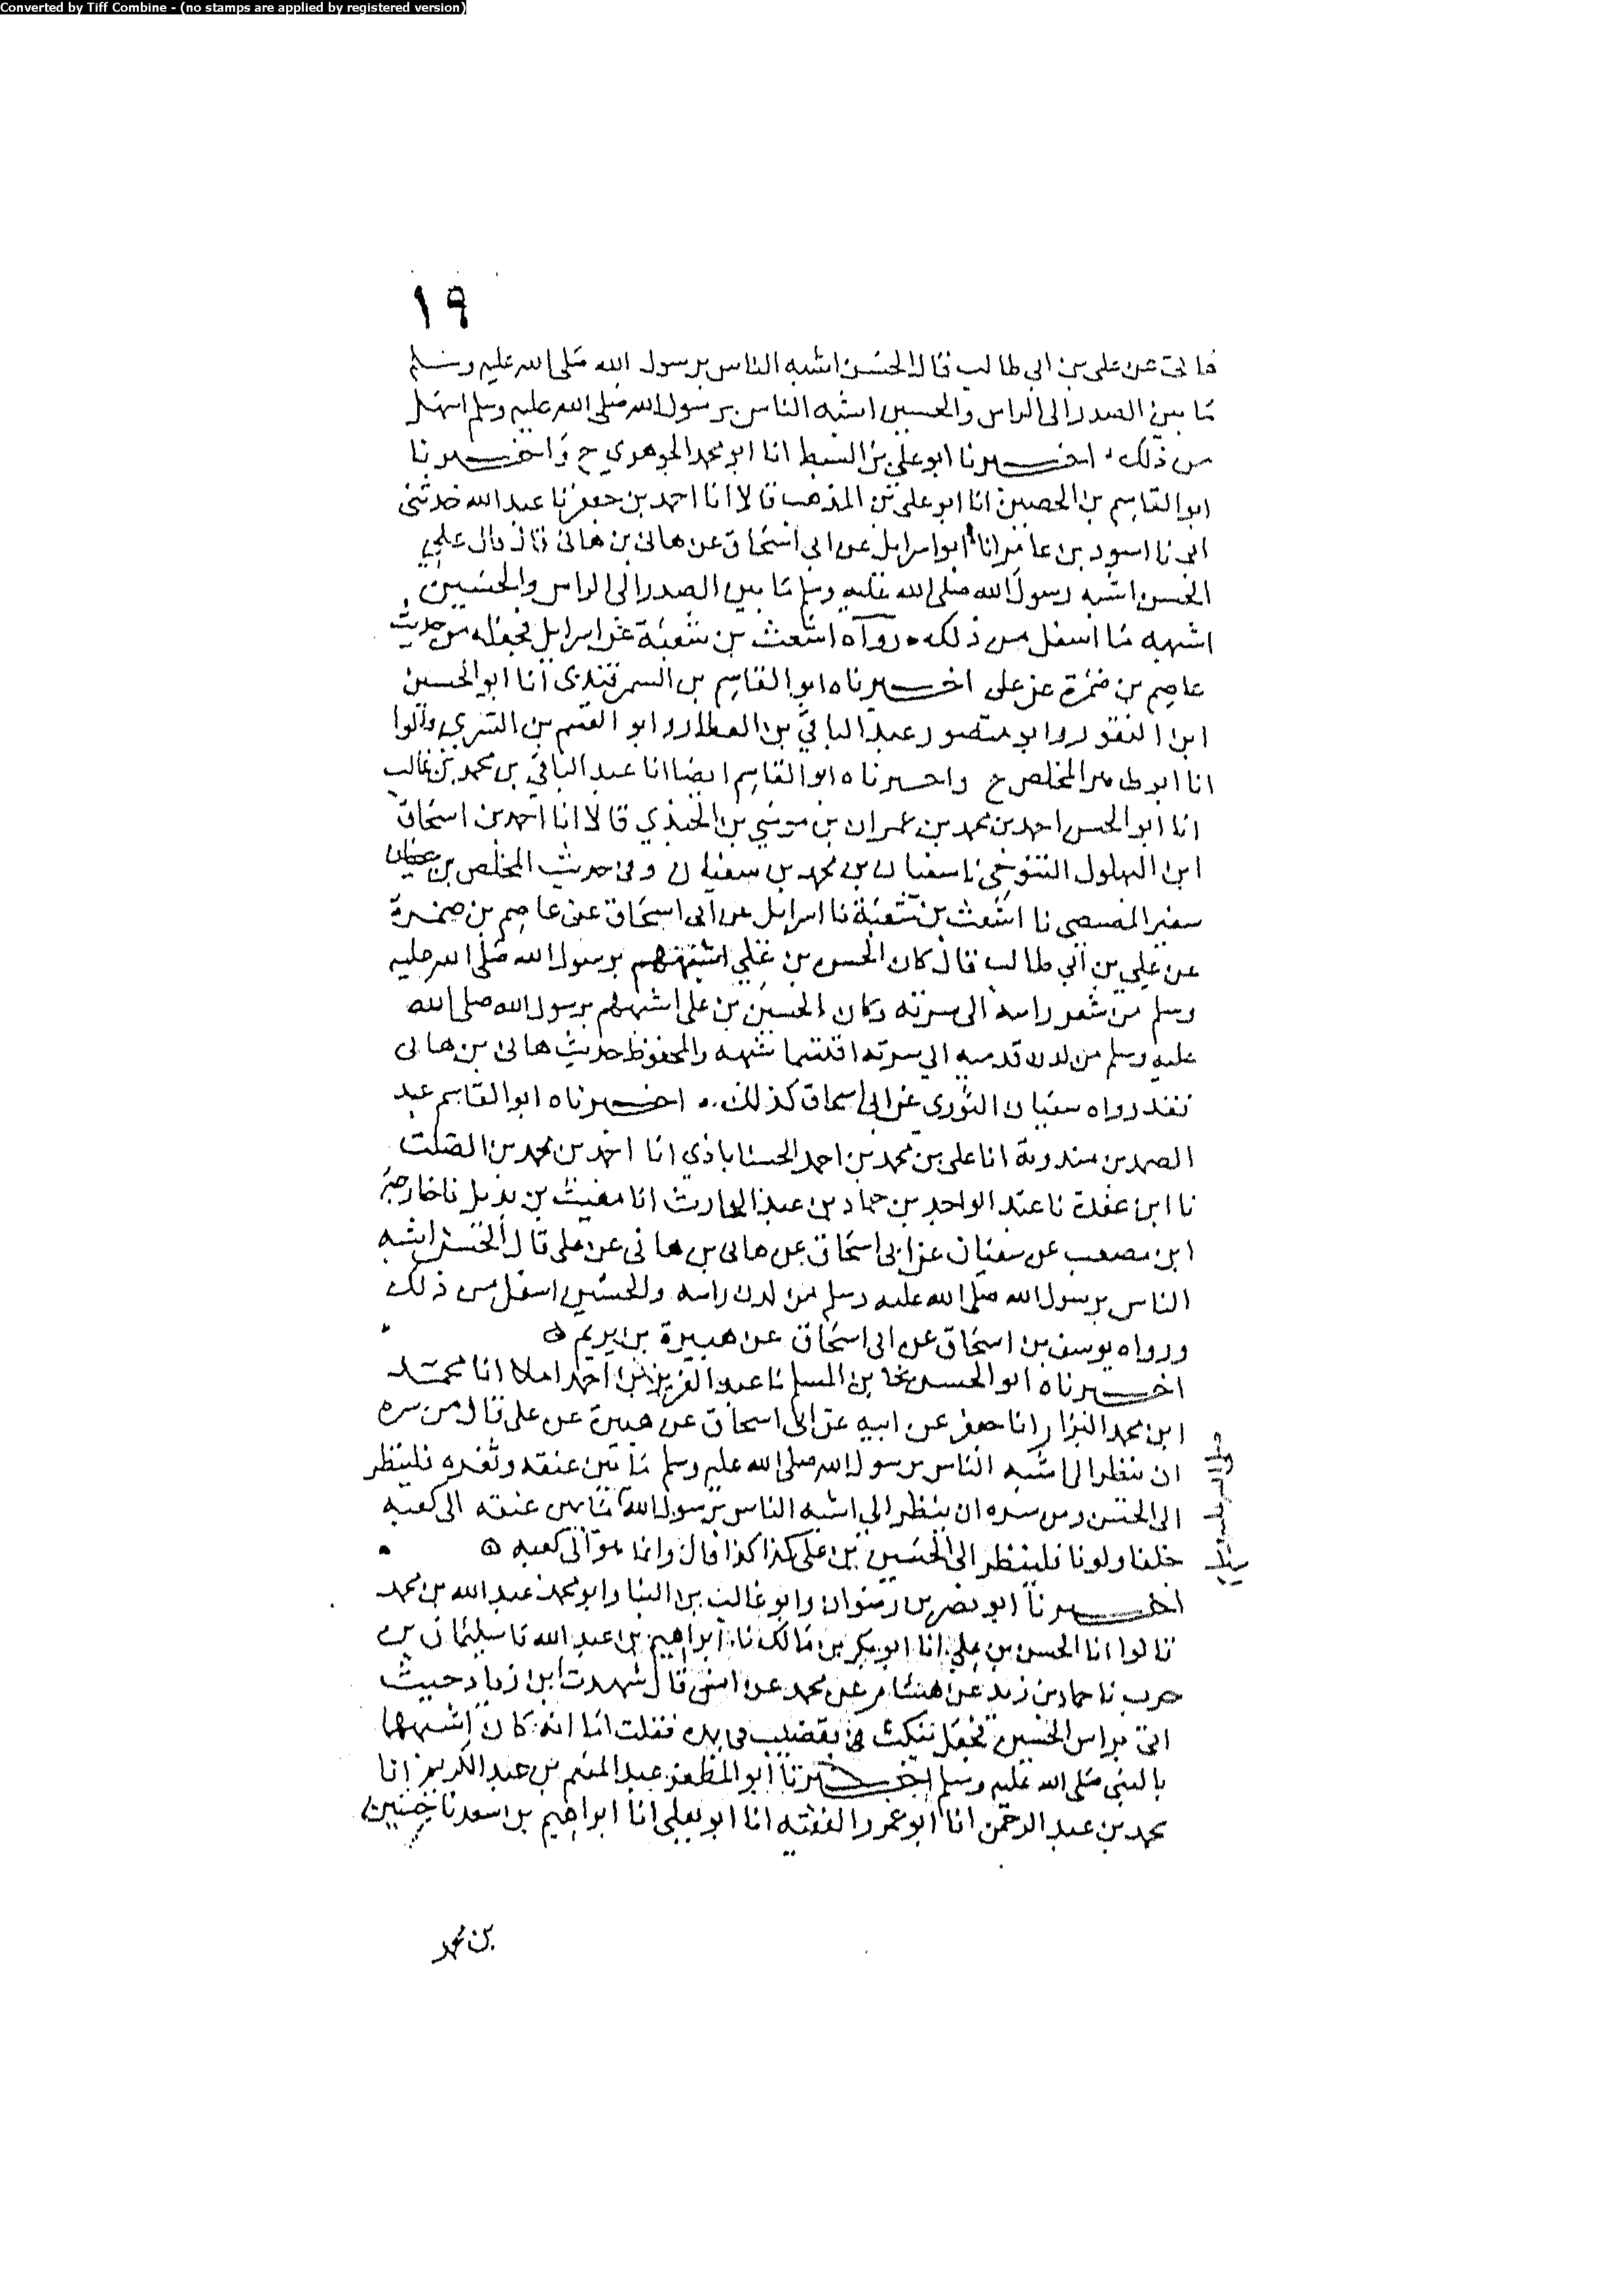 Converted by Tiff Combine - (no stamps are applied by registered version)
١٩
هانئ عن علي بن ابي طالب قال الحسن اشبه الناس برسول الله صلى الله عليه وسلم
ما بين الصدر الى الراس والحسين اشبه الناس برسول الله صلى الله عليه وسلم اسفل
من ذلك اخبرنا ابو علي بن السبط انا ابو محمد الجوهري ح واخبرنا
ابو القاسم بن الحصين انا ابو علي بن المذهب قالا انا احمد بن جعفر نا عبد الله حدثني
ابي نا اسود بن عامر انا ابو اسرايل عن ابي اسحاق عن هانئ بن هانئ قال قال علي
الحسن اشبه رسول الله صلى الله عليه وسلم ما بين الصدر الى الراس والحسين
اشبهه ما اسفل من ذلك رواه اشعث بن شعبة عن اسرايل فجعله من حديث
عاصم بن ضمرة عن علي اخبرناه ابو القاسم بن السمرقندي انا ابو الحسين
ابن النقور وابو منصور عبد الباقي بن العطار وابو القسم بن البسري قالوا
انا ابو طاهر المخلص ح واخبرناه ابو القاسم ايضا انا عبد الباقي بن محمد بن غالب
انا ابو الحسن احمد بن محمد بن عمران بن موسى بن الجندي قالا انا احمد بن اسحاق
ابن البهلول التنوخي نا سفيان بن محمد بن سفيان وفي حديث المخلص بن
سفير المصيصي نا اشعث بن شعبة نا اسرايل عن ابي اسحاق عن عاصم بن ضمرة
عن علي بن ابي طالب قال كان الحسن بن علي اشبههم برسول الله صلى الله عليه
وسلم من شعر راسه الى سرته وكان الحسين بن علي اشبههم برسول الله صلى الله
عليه وسلم من لدن قدميه الى سرته اقتسما شبهه والمحفوظ حديث هانئ بن هانئ
فقد رواه سفيان الثوري عن ابي اسحاق كذلك اخبرناه ابو القاسم عبد
الصمد بن مندوية انا علي بن محمد بن احمد الحسناباذي انا احمد بن محمد بن الصلت
نا ابن عقدة نا عبد الواحد بن حماد بن عبد الوارث انا مغيث بن بديل نا خارجة
ابن مصعب عن سفيان عن ابي اسحاق عن هانئ بن هانئ عن علي قال الحسن اشبه
الناس برسول الله صلى الله عليه وسلم من لدن راسه والحسين اسفل من ذلك
ورواه يوسف بن اسحاق عن ابي اسحاق عن هبيرة بن يريم
اخبرناه ابو الحسن بن المسلم نا عبد العزيز بن احمد املا انا محمد
ابن محمد البزار انا جعفر عن ابيه عن ابي اسحاق عن هبيرة عن علي قال من سره
ان ينظر الى اشبه الناس برسول الله صلى الله عليه وسلم ما بين عنقه وثغره فلينظر
الى الحسن ومن سره ان ينظر الى اشبه الناس برسول الله ما بين عنقه الى كعبه
خلقا ولونا فلينظر الى الحسين بن علي كذا كذا قال وانما هو الى كعبه
اخبرنا ابو نصر بن رضوان وابو غالب بن البنا وابو محمد عبد الله بن محمد
قالوا انا الحسن بن علي انا ابو بكر بن مالك نا ابراهيم بن عبد الله نا سليمان بن
حرب نا حماد بن زيد عن هشام عن محمد عن انس قال شهدت ابن زياد حيث
اتي براس الحسين فجعل ينكث فيه بقضيب في يده فقلت اما انه كان اشبههما
بالنبي صلى الله عليه وسلم اخبرنا ابو المظفر عبد المنعم بن عبد الكريم انا
محمد بن عبد الرحمن انا ابو عمرو الفقيه انا ابو يعلى انا ابراهيم بن اسعد نا حسين
بن محمد